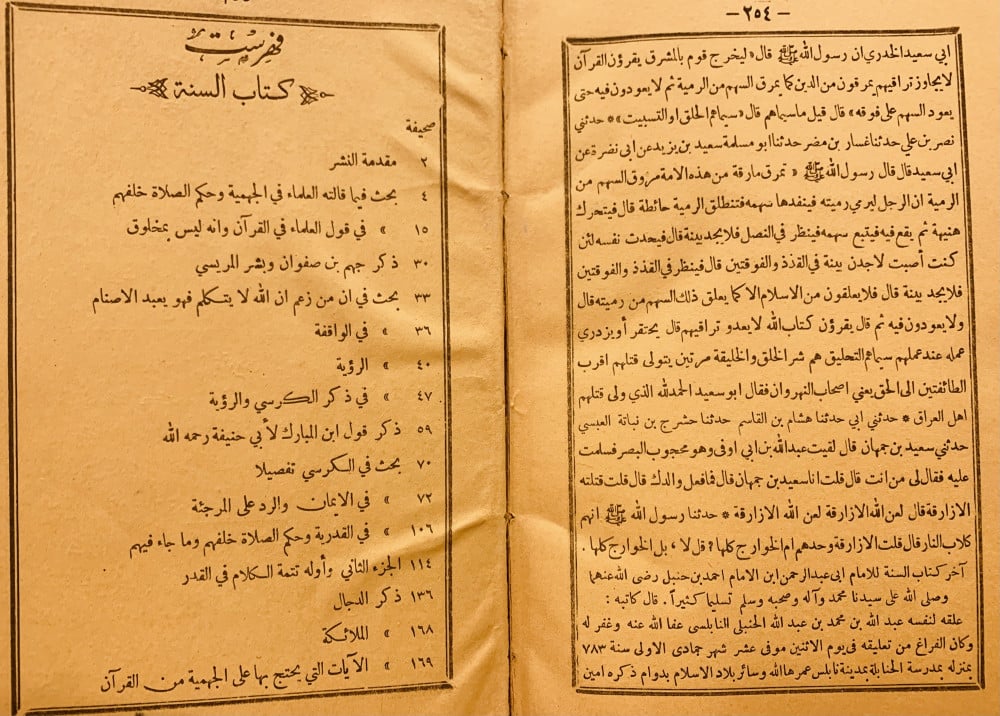 — ٢٥٤ —
ابي سعيد الخدري ان رسول الله ﷺ قال « ليخرج قوم بالمشرق يقرؤن القرآن
لا يجاوز تراقيهم يمرقون من الدين كما يمرق السهم من الرمية ثم لا يعودون فيه حتى
يعود السهم على فوقه » قال قيل ما سيماهم قال « سيماهم الحلق او التسبيت » * حدثني
نصر بن علي حدثنا غسان بن مضر حدثنا ابو مسلمة سعيد بن يزيد عن ابى نضرة عن
ابي سعيد قال قال رسول الله ﷺ « تمرق مارقة من هذه الامة مروق السهم من
الرمية ان الرجل ليرمي رميته فينفذها سهمه فتنطلق الرمية حائطة قال فيتحرك
هنيهة ثم يقع فيه فيتبع سهمه فينظر في النصل فلا يجد بينة قال فيحدث نفسه لئن
كنت أصبت لاجدن بينة في القذذ والفوقتين قال فينظر في القذذ والفوقتين
فلا يجد بينة قال فلا يعلقون من الاسلام الا كما يعلق ذلك السهم من رميته قال
ولا يعودون فيه ثم قال يقرؤن كتاب الله لا يعدو تراقيهم قال يحتقر أو يزدري
عمله عند عملهم سيماهم التحليق هم شر الخلق والخليقة مرتين يتولى قتلهم اقرب
الطائفتين الى الحق يعني اصحاب النهروان فقال ابو سعيد الحمد لله الذي ولى قتلهم
اهل العراق * حدثني ابي حدثنا هشام بن القاسم حدثنا حشرج بن نباتة العبسي
حدثني سعيد بن جمهان قال لقيت عبد الله بن ابي اوفى وهو محجوب البصر فسلمت
عليه فقال لى من انت قال قلت انا سعيد بن جمهان قال فما فعل والدك قال قلت قتلته
الازارقة قال لعن الله الازارقة لعن الله الازارقة * حدثنا رسول الله ﷺ انهم
كلاب النار قال قلت الازارقة وحدهم ام الخوارج كلها ? قل لا ، بل الخوارج كلها .
آخر كتاب السنة للامام ابى عبد الرحمن ابن الامام احمد بن حنبل رضى الله عنهما
وصلى الله على سيدنا محمد وآله وصحبه وسلم تسليما كثيراً . قال كاتبه :
علقه لنفسه عبد الله بن محمد بن عبد الله الحنبلي النابلسى عفا الله عنه وغفر له
وكان الفراغ من تعليقه في يوم الاثنين موفى عشر شهر جمادى الاولى سنة ٧٨٣
بمنزله بمدرسة الحنابلة بمدينة نابلس عمرها الله وسائر بلاد الاسلام بدوام ذكره امين
فهرست
كتاب السنة
صحيفة
٢ مقدمة النشر
٤ بحث فيما قالته العلماء في الجهمية وحكم الصلاة خلفهم
١٥ » في قول العلماء في القرآن وانه ليس بمخلوق
٣٠ ذكر جهم بن صفوان وبشر المريسي
٣٣ بحث في ان من زعم ان الله لا يتكلم فهو يعبد الاصنام
٣٦ » في الواقفة
٤٠ » الرؤية
٤٧ » في ذكر الكرسي والرؤية
٥٩ ذكر قول ابن المبارك لأبي حنيفة رحمه الله
٧٠ بحث في الكرسي تفصيلا
٧٢ » في الايمان والرد على المرجئة
١٠٦ » في القدرية وحكم الصلاة خلفهم وما جاء فيهم
١١٤ الجزء الثاني وأوله تتمة الكلام في القدر
١٣٦ ذكر الدجال
١٦٨ » الملائكة
١٦٩ » الآيات التي يحتج بها على الجهمية من القرآن